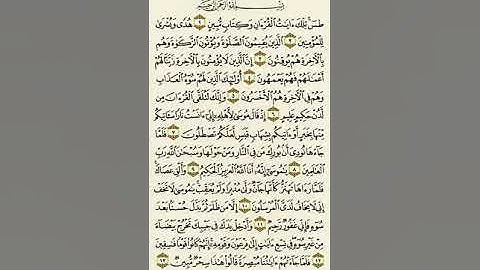 بِسْمِ ٱللَّهِ ٱلرَّحْمَٰنِ ٱلرَّحِيمِ
طسٓ تِلْكَ ءَايَٰتُ ٱلْقُرْءَانِ وَكِتَابٍ مُّبِينٍ ١ هُدًى وَبُشْرَىٰ
لِلْمُؤْمِنِينَ ٢ ٱلَّذِينَ يُقِيمُونَ ٱلصَّلَوٰةَ وَيُؤْتُونَ ٱلزَّكَوٰةَ وَهُم
بِٱلْءَاخِرَةِ هُمْ يُوقِنُونَ ٣ إِنَّ ٱلَّذِينَ لَا يُؤْمِنُونَ بِٱلْءَاخِرَةِ زَيَّنَّا لَهُمْ
أَعْمَٰلَهُمْ فَهُمْ يَعْمَهُونَ ٤ أُو۟لَٰٓئِكَ ٱلَّذِينَ لَهُمْ سُوٓءُ ٱلْعَذَابِ
وَهُمْ فِى ٱلْءَاخِرَةِ هُمُ ٱلْأَخْسَرُونَ ٥ وَإِنَّكَ لَتُلَقَّى ٱلْقُرْءَانَ مِن
لَّدُنْ حَكِيمٍ عَلِيمٍ ٦ إِذْ قَالَ مُوسَىٰ لِأَهْلِهِۦٓ إِنِّىٓ ءَانَسْتُ نَارًا سَـَٔاتِيكُم
مِّنْهَا بِخَبَرٍ أَوْ ءَاتِيكُم بِشِهَابٍ قَبَسٍ لَّعَلَّكُمْ تَصْطَلُونَ ٧ فَلَمَّا
جَآءَهَا نُودِىَ أَنۢ بُورِكَ مَن فِى ٱلنَّارِ وَمَنْ حَوْلَهَا وَسُبْحَٰنَ ٱللَّهِ رَبِّ
ٱلْعَٰلَمِينَ ٨ يَٰمُوسَىٰٓ إِنَّهُۥٓ أَنَا ٱللَّهُ ٱلْعَزِيزُ ٱلْحَكِيمُ ٩ وَأَلْقِ عَصَاكَ
فَلَمَّا رَءَاهَا تَهْتَزُّ كَأَنَّهَا جَآنٌّ وَلَّىٰ مُدْبِرًا وَلَمْ يُعَقِّبْ يَٰمُوسَىٰ لَا تَخَفْ
إِنِّى لَا يَخَافُ لَدَىَّ ٱلْمُرْسَلُونَ ١٠ إِلَّا مَن ظَلَمَ ثُمَّ بَدَّلَ حُسْنًۢا بَعْدَ
سُوٓءٍ فَإِنِّى غَفُورٌ رَّحِيمٌ ١١ وَأَدْخِلْ يَدَكَ فِى جَيْبِكَ تَخْرُجْ بَيْضَآءَ
مِنْ غَيْرِ سُوٓءٍ فِى تِسْعِ ءَايَٰتٍ إِلَىٰ فِرْعَوْنَ وَقَوْمِهِۦٓ إِنَّهُمْ كَانُوا۟ قَوْمًا فَٰسِقِينَ
١٢ فَلَمَّا جَآءَتْهُمْ ءَايَٰتُنَا مُبْصِرَةً قَالُوا۟ هَٰذَا سِحْرٌ مُّبِينٌ ١٣